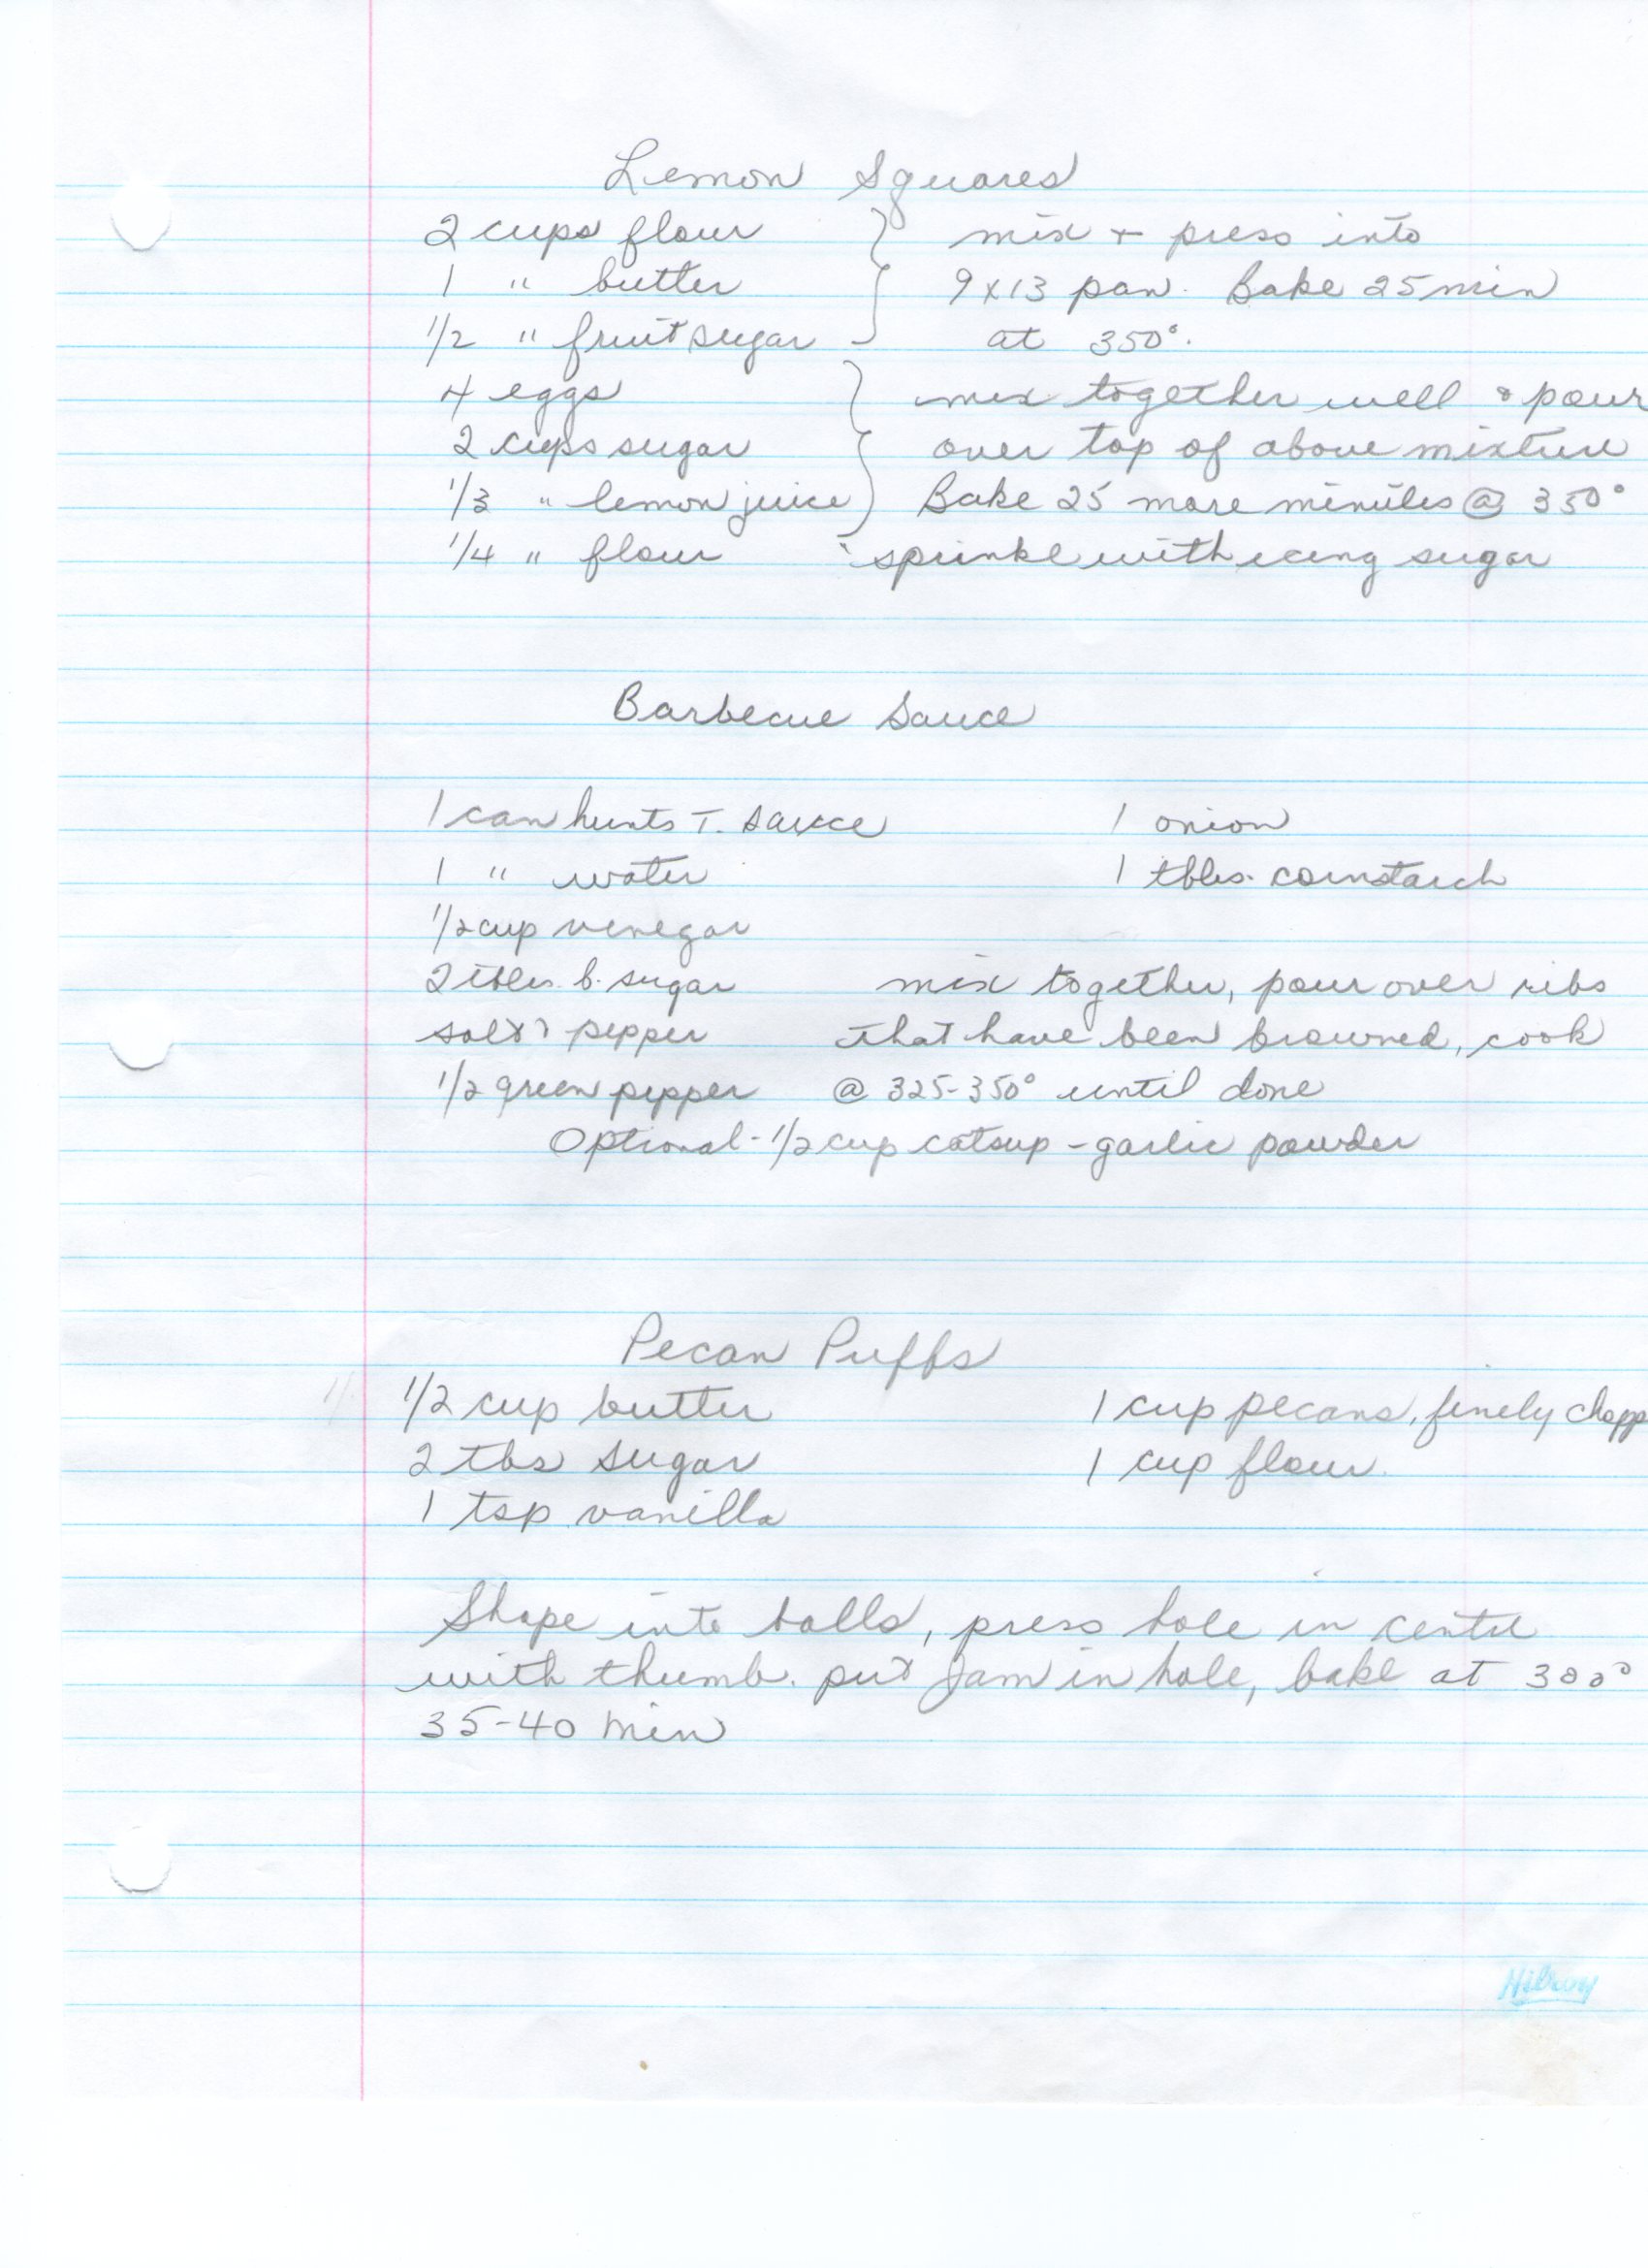 Lemon Squares
2 cups flour } mix + press into
1 " butter 9x13 pan. Bake 25 min
1/2 " fruit sugar at 350°.
4 eggs } mix together well & pour
2 cups sugar over top of above mixture
1/3 " lemon juice Bake 25 more minutes @ 350°
1/4 " flour sprinkle with icing sugar
Barbecue Sauce
1 can hunts T. sauce 1 onion
1 " water 1 tbles. cornstarch
1/2 cup venegar
2 tbles. b. sugar mix together, pour over ribs
salt & pepper that have been browned, cook
1/2 green pepper @ 325-350° until done
Optional - 1/2 cup catsup - garlic powder
Pecan Puffs
1/2 cup butter 1 cup pecans, finely chopp
2 tbs sugar 1 cup flour
1 tsp vanilla
Shape into balls, press hole in centre
with thumb. put jam in hole, bake at 300°
35-40 min
Hilroy